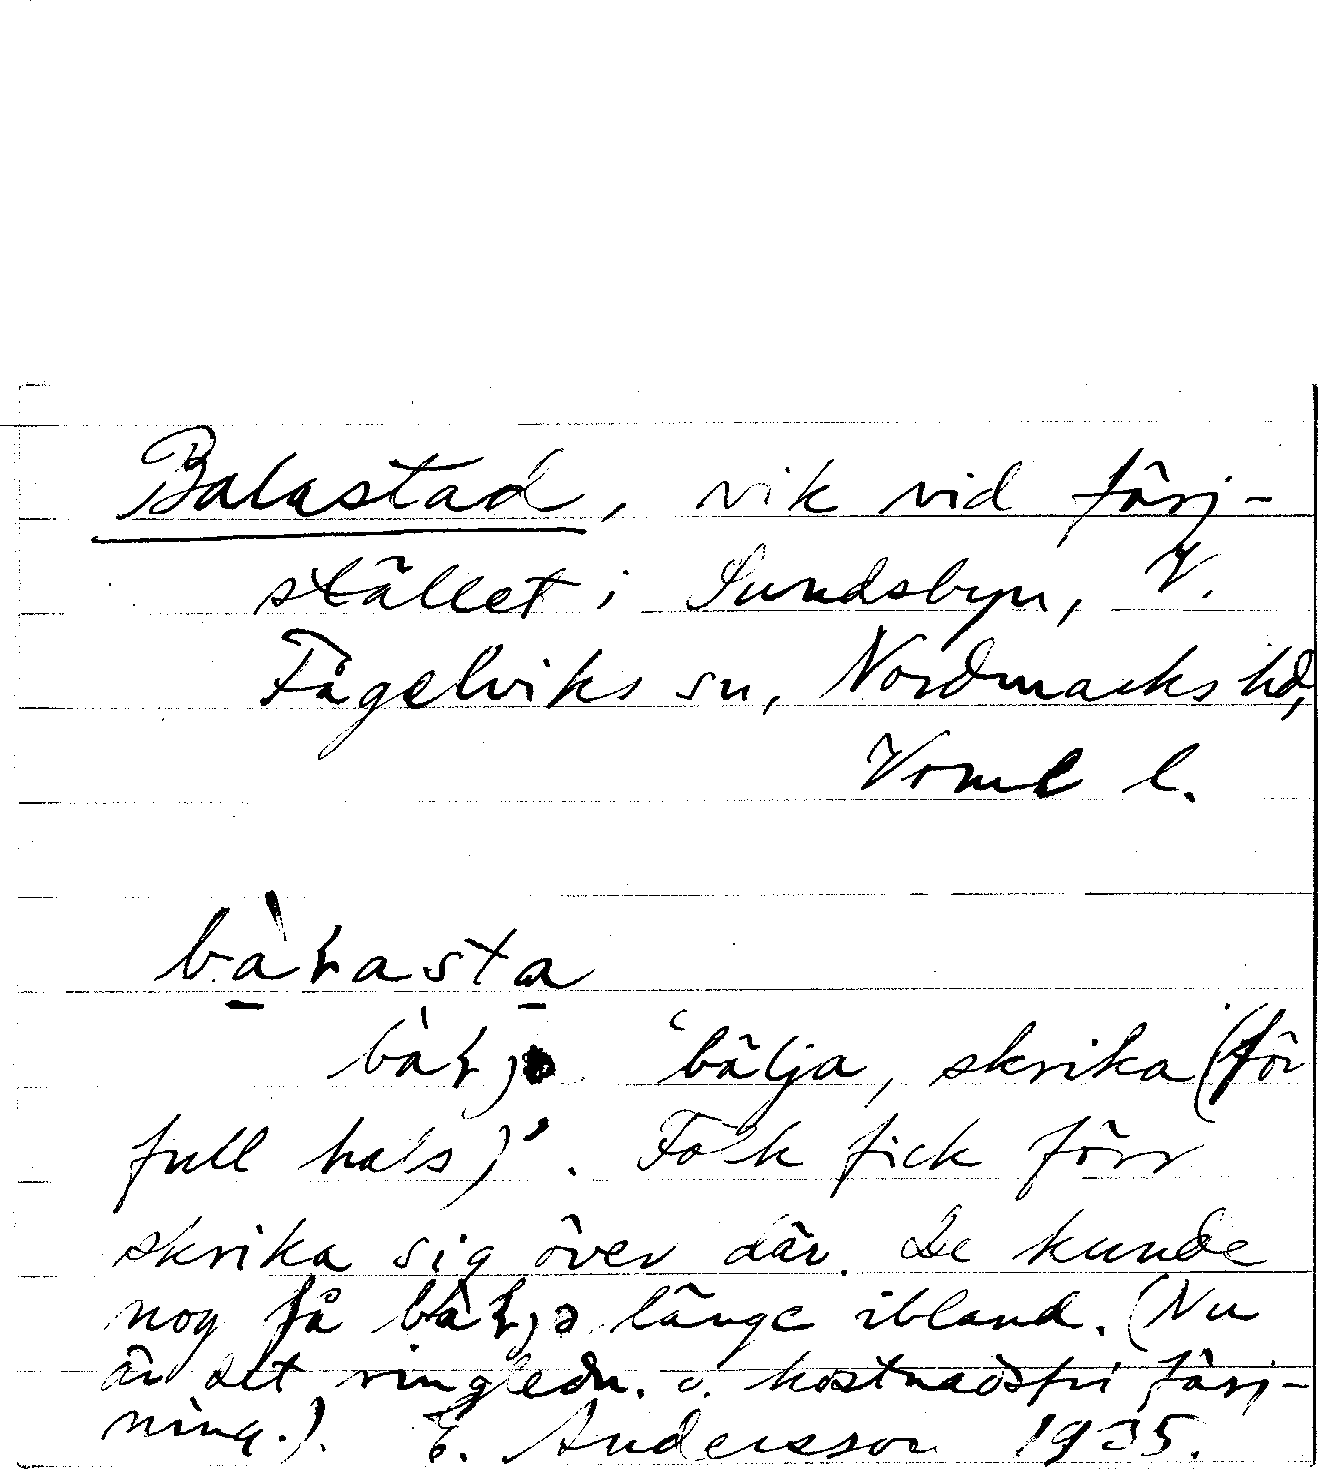 Balastad, vik vid färj-
stället i Sundsbyn, V.
Fågelviks sn, Nordmarks hd,
Vrml l.
bàɽasta
bàɽjə 'bälja, skrika (för
full hals)'. Folk fick förr
skrika sig över där. De kunde
nog få bàɽjə länge ibland. (Nu
är det ringledn. o. kostnadsfri färj-
ning.). E. Andersson 1935.